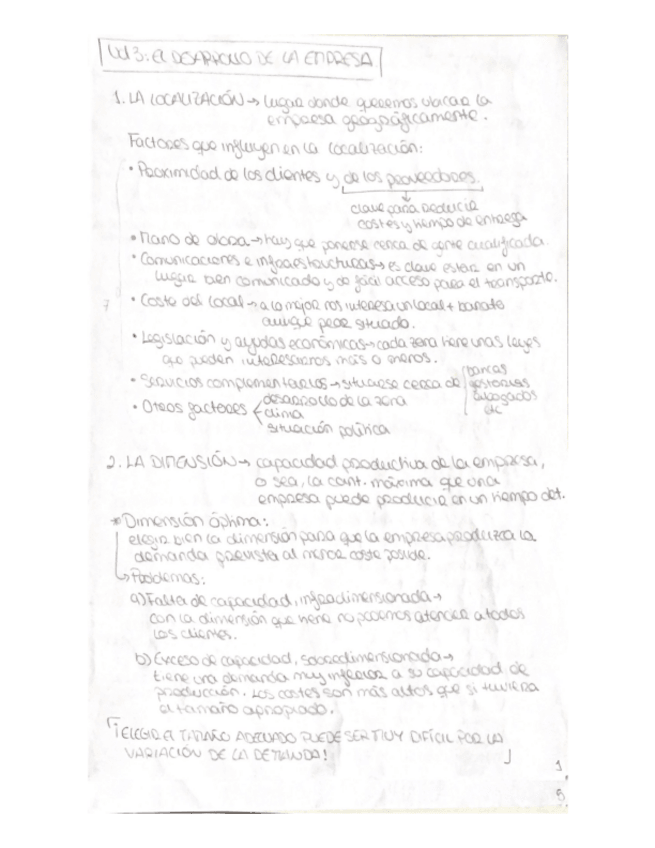 UD 3: EL DESARROLLO DE LA EMPRESA
1. LA LOCALIZACIÓN → lugar donde queremos ubicar la
empresa geográficamente.
Factores que influyen en la localización:
• Proximidad de los clientes y de los proveedores.
↓
clave para reducir
costes y tiempo de entrega
• Mano de obra → hay que ponerse cerca de gente cualificada.
• Comunicaciones e infraestructuras → es clave estar en un
lugar bien comunicado y de fácil acceso para el transporte.
• Coste del local → a lo mejor nos interesa un local + barato
aunque peor situado.
• Legislación y ayudas económicas → cada zona tiene unas leyes
que pueden interesarnos más o menos.
• Servicios complementarios → situarse cerca de
bancos
gestorías
abogados
etc
• Otros factores
desarrollo de la zona
clima
situación política
2. LA DIMENSIÓN → capacidad productiva de la empresa,
o sea, la cant. máxima que una
empresa puede producir en un tiempo det.
* Dimensión óptima:
elegir bien la dimensión para que la empresa produzca la
demanda prevista al menor coste posible.
↳ Problemas:
a) Falta de capacidad, infradimensionada →
con la dimensión que tiene no podemos atender a todos
los clientes.
b) Exceso de capacidad, sobredimensionada →
tiene una demanda muy inferior a su capacidad de
producción. Los costes son más altos que si tuviera
el tamaño apropiado.
¡ELEGIR EL TAMAÑO ADECUADO PUEDE SER MUY DIFÍCIL POR LA
VARIACIÓN DE LA DEMANDA!
1